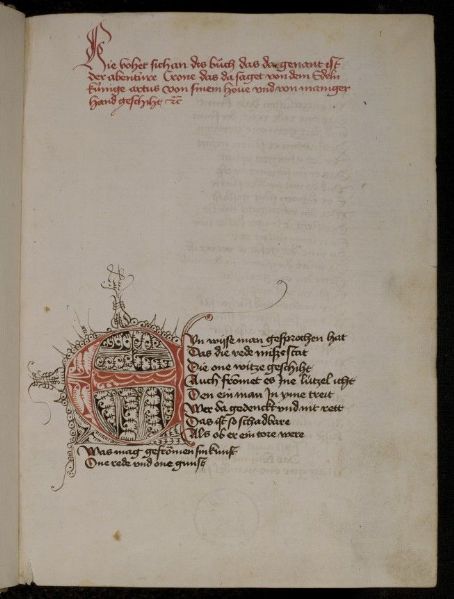 Hie hohet sich an dis buch das da genant ist
der abenture Crone das da saget von dem Edeln
kunige artus von sinem houe vnd von maniger
hand geschiht etc
EIn wisse man gesprochen hat
Das die rede misse stat
Die one witze geschiht
Auch fromet es jne lutzel iht
Den ein man Jn yme treit
Wer da gedenckt vnd nit rett
Das ist so schadbare
Als ob er ein tore were
Was mag gefromen sin kunst
One rede vnd one gunst